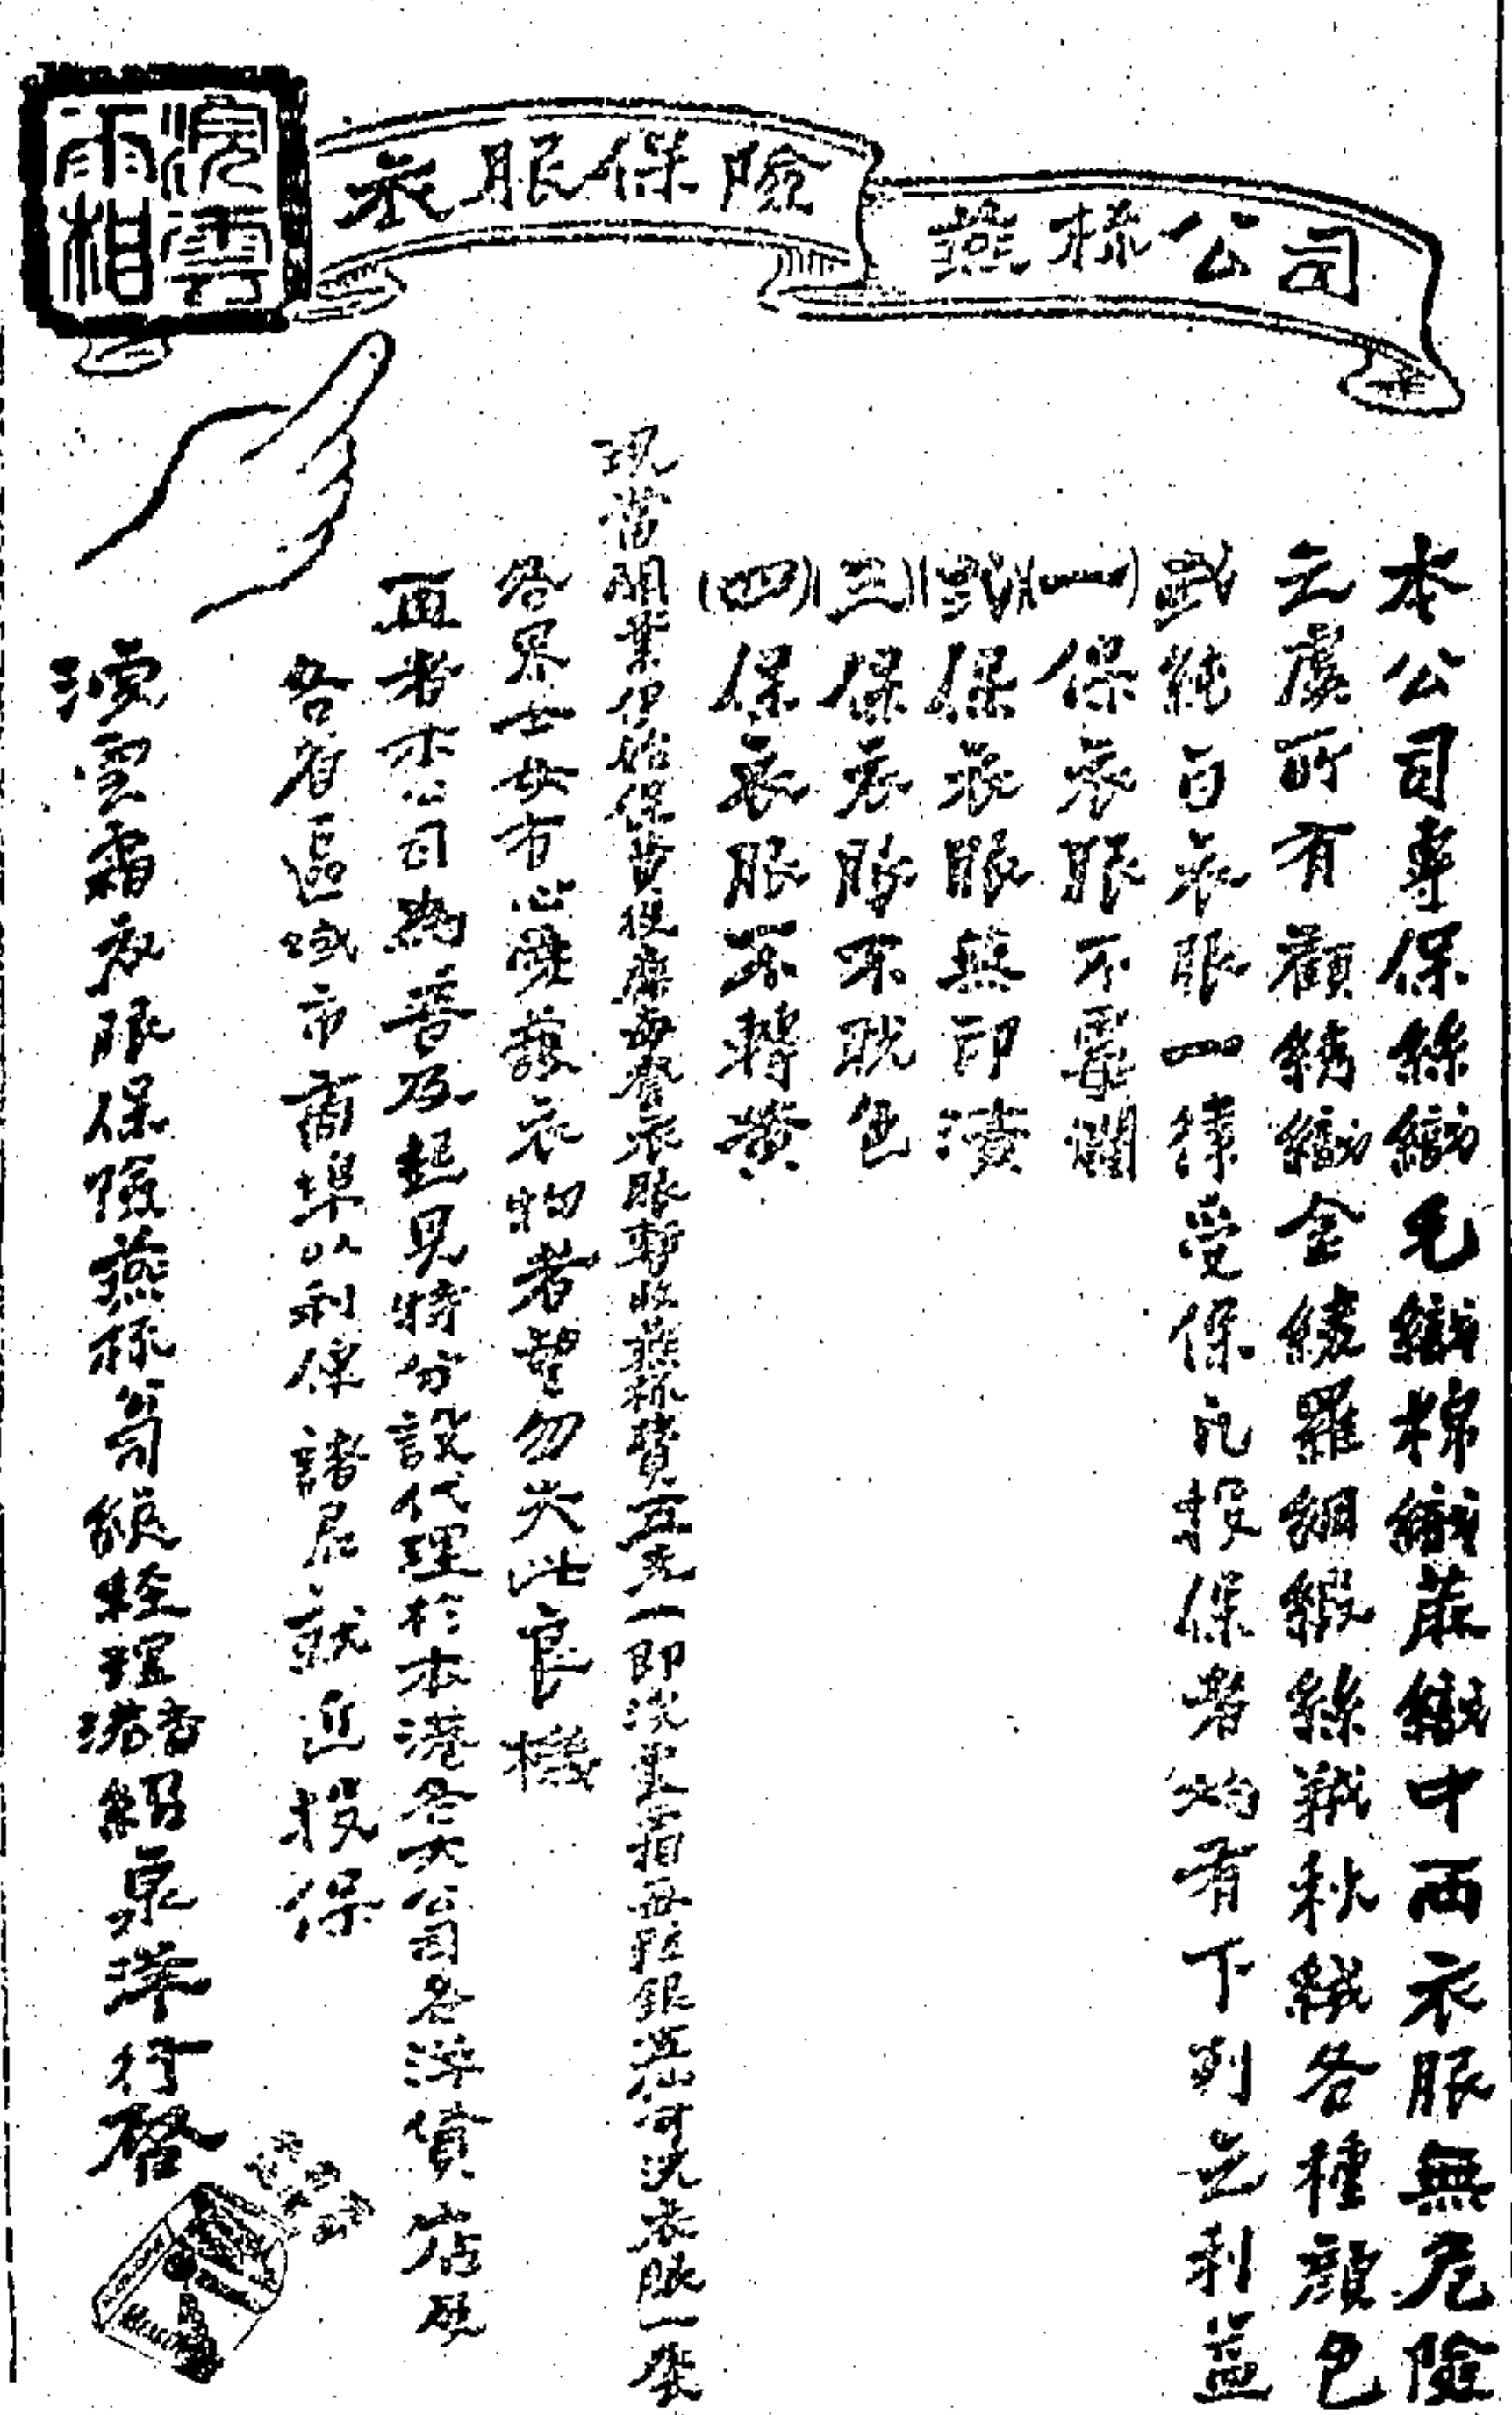 浣雲
雨相
衣服保險
燕梳公司
本公司專保絲織毛織棉織蔴織中西衣服無危險
之虞所有顧綉織金綾羅綢緞絲絨秋絨各種顏色
或純白衣服一律受保凡投保者均有下列之利益
(一)保衣服不霉爛
(弍)保衣服無印漬
(三)保衣服不脫色
(四)保衣服不轉黃
現當開業伊始保費從廉每套衣服暫收燕梳費五先(即浣雲霜每粒銀五仙可洗衣服一套
各界士女有心愛護衣物者望勿失此良機
再者本公司為普及起見特分設代理於本港各大公司各洋貨店及
各省區域市商埠以利便諸君就近投保
浣雲霜衣服保險燕梳公司總經理香港紹泉洋行啓